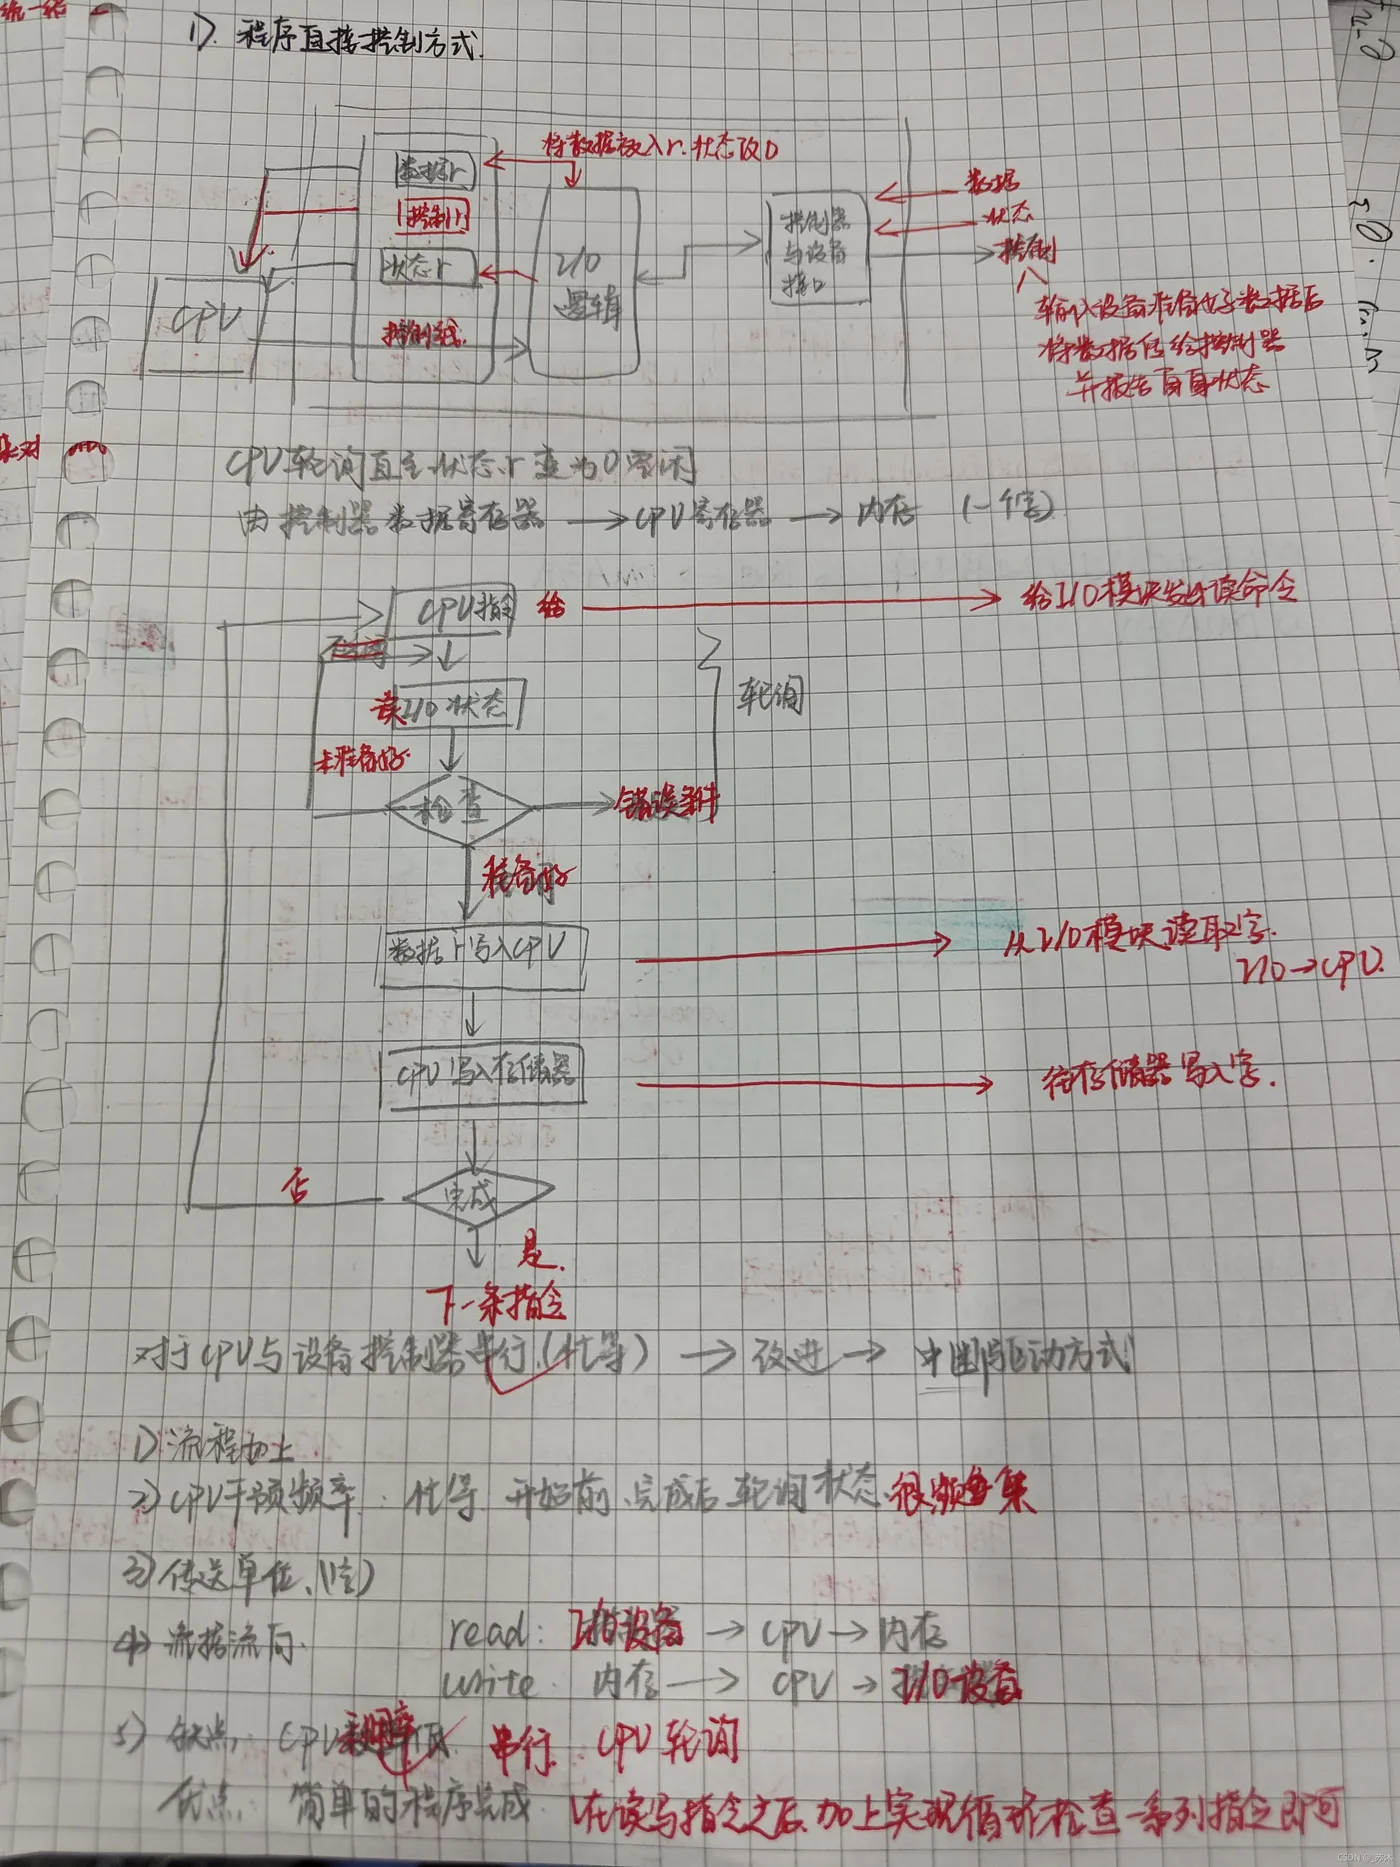 1). 程序直接控制方式.
将数据放入r.状态改0
数据r
控制r
状态r
CPU
控制线
I/O
逻辑
控制器
与设备
接口
数据
状态
控制
输入设备准备好数据后
将数据传给控制器
并报告自身状态
CPU轮询直至状态r变为0空闲
由控制器数据寄存器 → CPU寄存器 → 内存 (一个字)
CPU指令 给 → 给I/O模块发出读命令
读I/O状态
轮询
未准备好
检查
错误条件
准备好
数据r写入CPU → 从I/O模块读取字.
I/O→CPU.
CPU写入存储器 → 往存储器写入字.
否
完成
是.
下一条指令
对于CPU与设备控制器串行(忙等) → 改进 → 中断驱动方式
1) 流程如上
2) CPU干预频率. 忙等 开始前、完成后 轮询状态.很频繁
3) 传送单位、(1字)
4) 流据流向. read: I/O设备 → CPU → 内存
write: 内存 → CPU → I/O设备
5) 缺点: CPU利用率低 串行. CPU轮询
优点: 简单的程序完成 在读写指令之后.加上实现循环检查一系列指令即可
CSDN @_苏沐